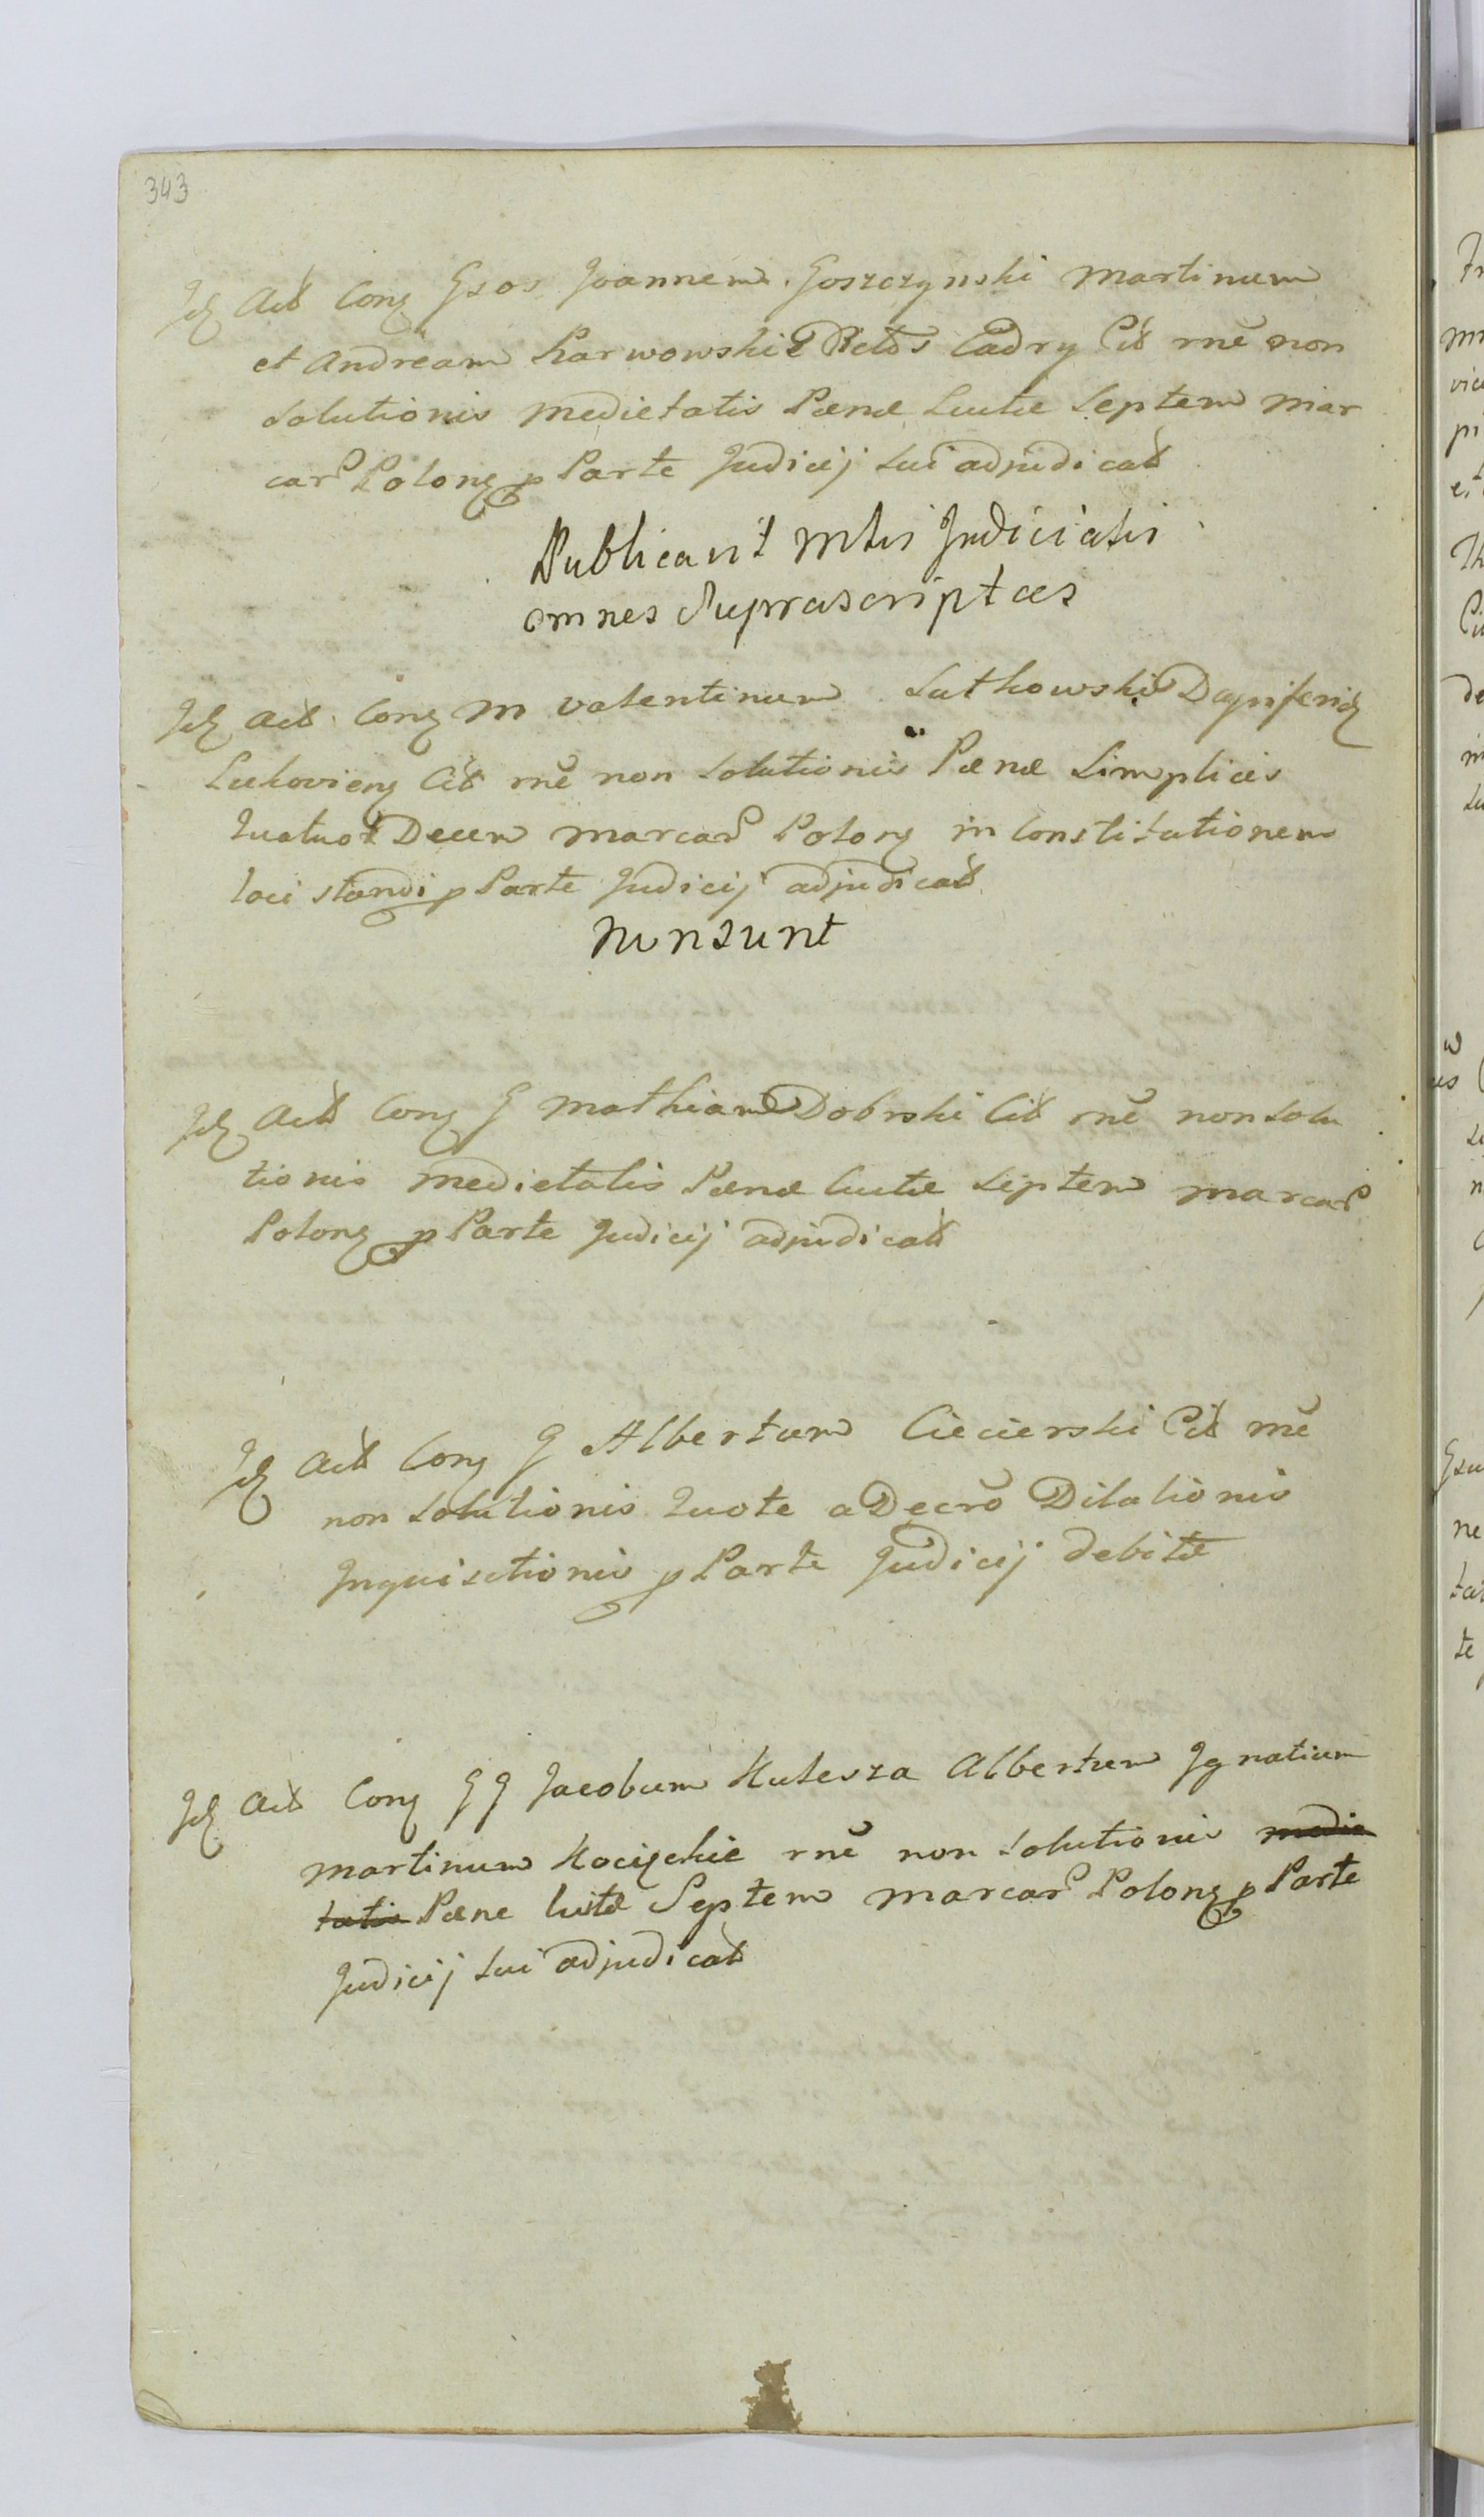 343
Id Act Conq Gsos Joannem Goszczynski Martinum
et Andream Karwowskie Dictos Cadry Cit rñe non
Solutionis Medietatis Pænæ Luitæ Septem Mar
car Polonq p Parte Judicij Sui adjudicat
Publicavit Mtis Judicialis
omnes Suprascriptas
Id Act Conq M Valentinum Lutkowski Dapiferid
Lukovienq Cit rñe non Solutionis Pænæ Simplicis
Quatuor Decem Marcar Polonq in Constitutionem
loci standi p Parte Judicij adjudicat
Non sunt
Id Act Conq G Mathiam Dobrski Cit rñe non Solu
tionis Medietatis Pænæ Luitæ Septem Marcar
Polonq p Parte Judicij adjudicat
Id Act Conq G Albertum Ciecierski Cit rñe
non Solutionis Quote a Decro Dilationis
Inquisitionis p Parte Judicij debitæ
Id Act Conq GG Jacobum Kulesza Albertum Ignatium
Martinum Kocięckie rñe non Solutionis medie
tatis Pæne luitæ Septem Marcar Polonq p Parte
Judicij Sui adjudicat